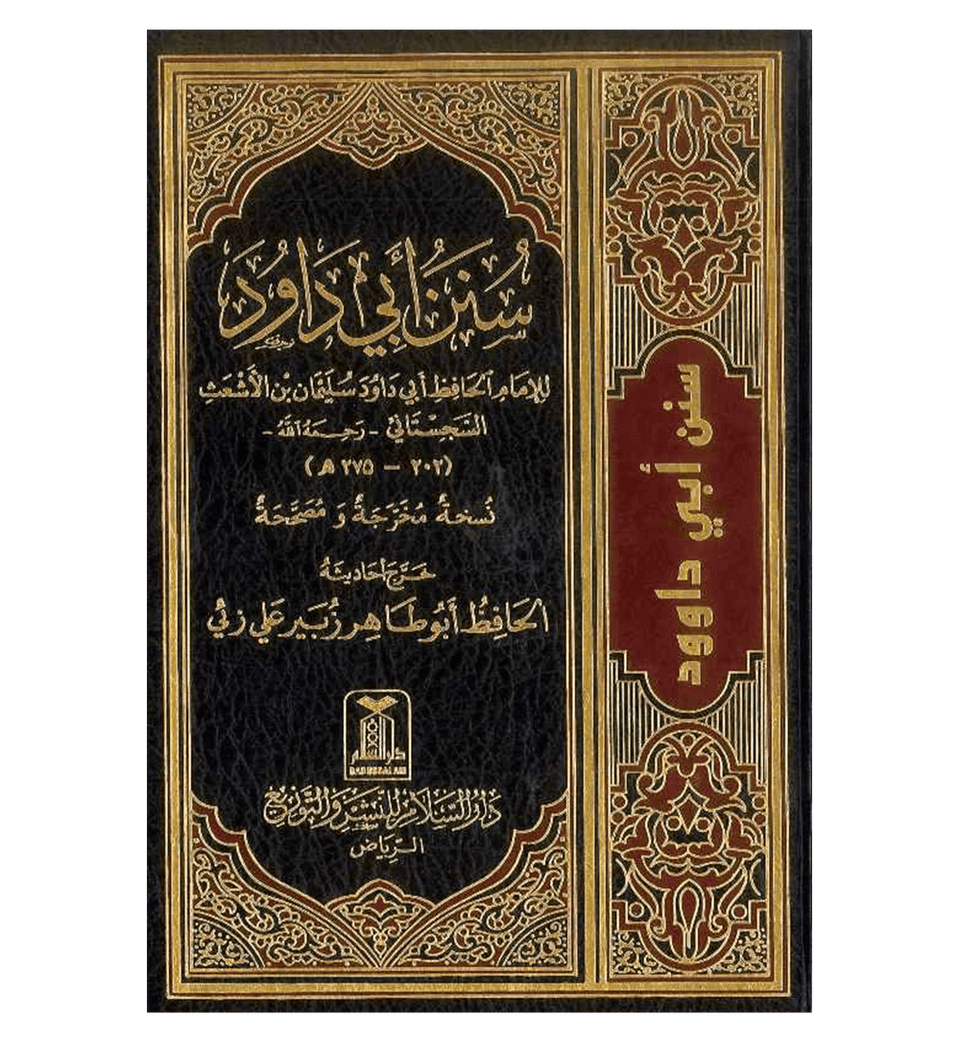 سُنَنُ أَبِي دَاوُدَ
لِلإِمَامِ الحَافِظِ أَبِي دَاوُدَ سُلَيْمَان بْنِ الأَشْعَثِ
السَّجِسْتَانِي - رَحِمَهُ اللَّهُ -
(٢٠٢ - ٢٧٥ هـ)
نُسخَةٌ مُخَرَّجَةٌ وَ مُصَحَّحَةٌ
خَرَّجَ أَحَادِيثَهُ
الحَافِظُ أَبُو طَاهِر زُبَير عَلي زئي
دار السلام
DARUSSALAM
دَارُ السَّلَامِ لِلنَّشْرِ وَالتَّوْزِيعِ
الرِّيَاض
سنن أبي داوود